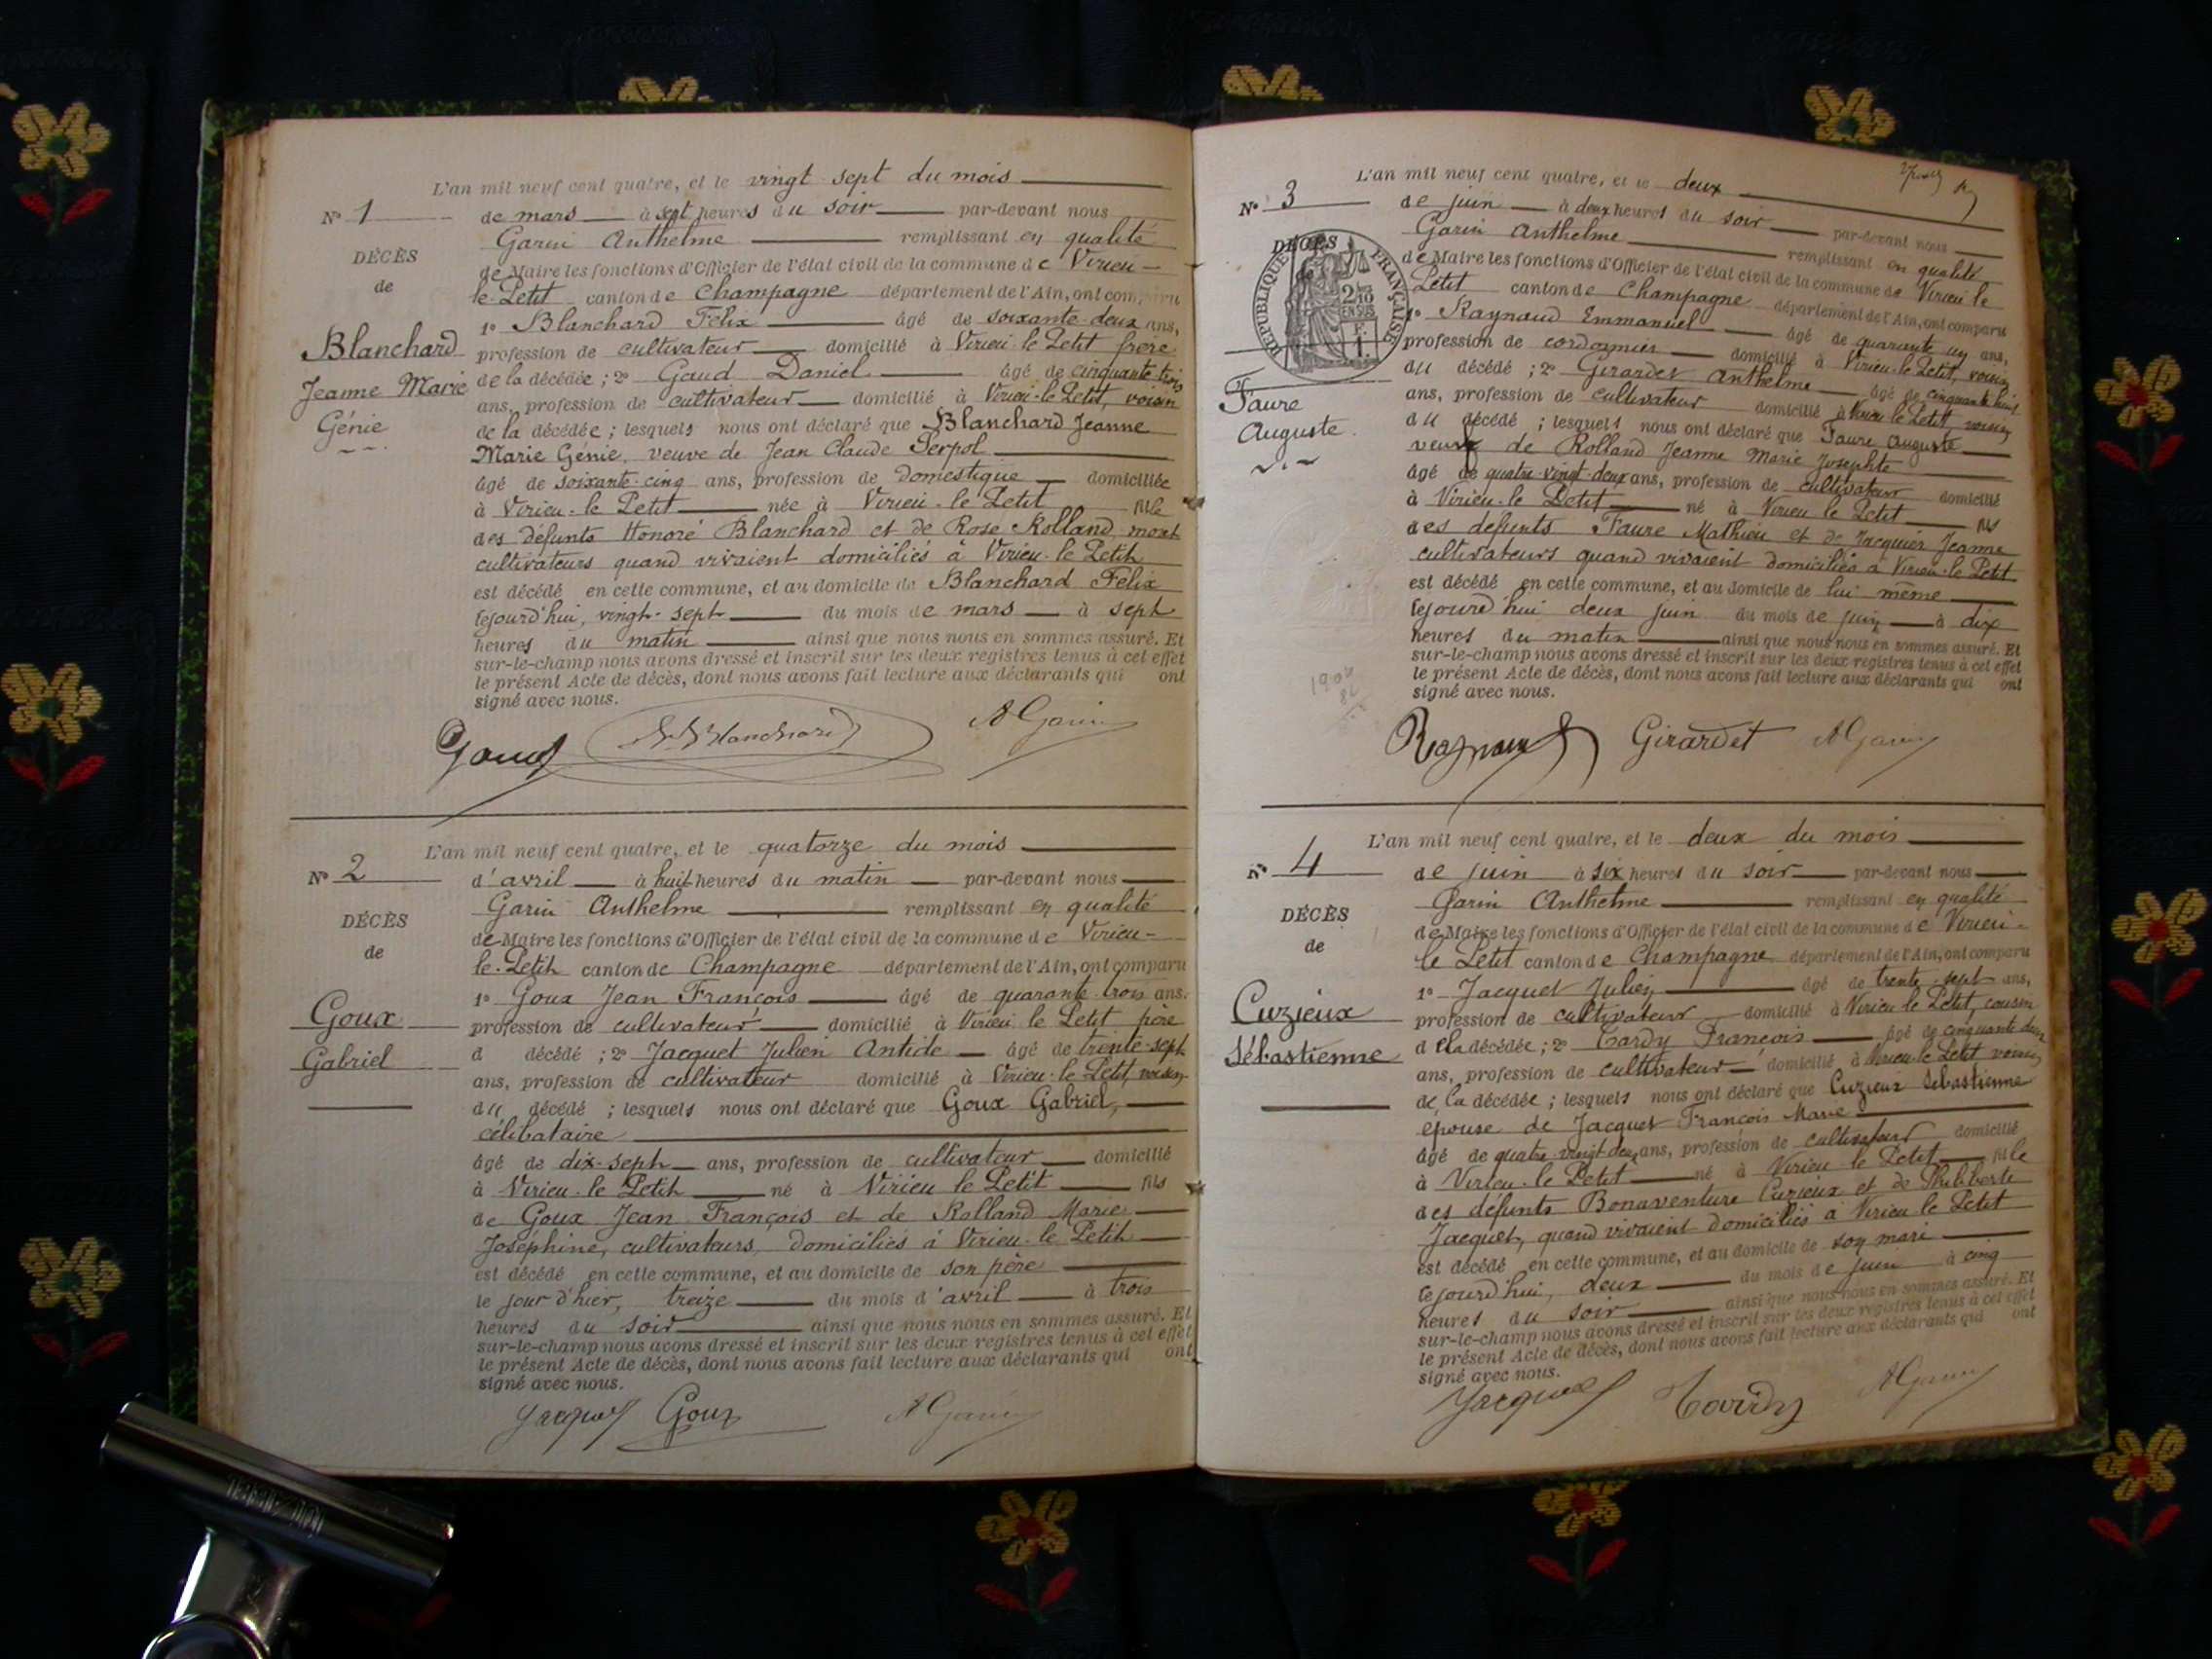 L'an mil neuf cent quatre, et le vingt sept du mois
N° 1
de mars à sept heures du soir par-devant nous
Garin Anthelme remplissant en qualité
DÉCÈS
de Maire les fonctions d'Officier de l'état civil de la commune de Virieu-
de
le-Petit canton de Champagne département de l'Ain, ont comparu
1° Blanchard Félix âgé de soixante-deux ans,
Blanchard
profession de cultivateur domicilié à Virieu le Petit frère
Jeanne Marie
de la décédée ; 2° Gaud Daniel âgé de cinquante trois
ans, profession de cultivateur domicilié à Virieu-le-Petit, voisin
Génie
de la décédée ; lesquels nous ont déclaré que Blanchard Jeanne
Marie Génie, veuve de Jean Claude Serpol
âgé de soixante-cinq ans, profession de domestique domiciliée
à Virieu-le Petit née à Virieu-le Petit fille
des défunts Honoré Blanchard et de Rose Rolland,
cultivateurs quand vivaient domiciliés à Virieu-le Petit
est décédé en cette commune, et au domicile de Blanchard Félix
cejourd'hui, vingt-sept du mois de mars à sept
heures du matin ainsi que nous nous en sommes assuré. Et
sur-le-champ nous avons dressé et inscrit sur les deux registres tenus à cet effet
le présent Acte de décès, dont nous avons fait lecture aux déclarants qui ont
signé avec nous.
Gaud Blanchard A Garin
L'an mil neuf cent quatre, et le quatorze du mois
N° 2
d'avril à huit heures du matin par-devant nous
Garin Anthelme remplissant en qualité
DÉCÈS
de Maire les fonctions d'Officier de l'état civil de la commune de Virieu-
de
le-Petit canton de Champagne département de l'Ain, ont comparu
1° Goux Jean François âgé de quarante trois ans,
Goux
profession de cultivateur domicilié à Virieu le Petit père
Gabriel
d décédé ; 2° Jacquet Julien Antide âgé de trente-sept
ans, profession de cultivateur domicilié à Virieu-le Petit, voisin
du décédé ; lesquels nous ont déclaré que Goux Gabriel,
célibataire
âgé de dix-sept ans, profession de cultivateur domicilié
à Virieu-le Petit né à Virieu le Petit fils
de Goux Jean François et de Rolland Marie
Joséphine, cultivateurs, domiciliés à Virieu-le Petit
est décédé en cette commune, et au domicile de son père
le jour d'hier, treize du mois d'avril à trois
heures du soir ainsi que nous nous en sommes assuré. Et
sur-le-champ nous avons dressé et inscrit sur les deux registres tenus à cet effet
le présent Acte de décès, dont nous avons fait lecture aux déclarants qui ont
signé avec nous.
Jacquet Goux A Garin
L'an mil neuf cent quatre, et le deux
N° 3
de juin à deux heures du soir par-devant nous
Garin Anthelme remplissant en qualité
DÉCÈS
de
RÉPUBLIQUE FRANÇAISE
2/10
EN SUS
de Maire les fonctions d'Officier de l'état civil de la commune de Virieu le
Petit canton de Champagne département de l'Ain, ont comparu
1° Raynaud Emmanuel âgé de quarante un ans,
profession de cordonnier domicilié à Virieu-le-Petit, voisin
Faure
du décédé ; 2° Girardet Anthelme âgé de cinquante huit
ans, profession de cultivateur domicilié à Virieu le Petit, voisin
Auguste
du décédé ; lesquels nous ont déclaré que Faure Auguste
veuf de Rolland Jeanne Marie Josephte
âgé de quatre-vingt-deux ans, profession de cultivateur domicilié
à Virieu-le Petit né à Virieu le Petit fils
des défunts Faure Mathieu et de Jacquier Jeanne
cultivateurs quand vivaient domiciliés à Virieu-le Petit
est décédé en cette commune, et au domicile de lui même
cejourd'hui deux juin du mois de juin à dix
heures du matin ainsi que nous nous en sommes assuré. Et
sur-le-champ nous avons dressé et inscrit sur les deux registres tenus à cet effet
le présent Acte de décès, dont nous avons fait lecture aux déclarants qui ont
signé avec nous.
Raynaud Girardet A Garin
L'an mil neuf cent quatre, et le deux du mois
N° 4
de juin à six heures du soir par-devant nous
Garin Anthelme remplissant en qualité
DÉCÈS
de Maire les fonctions d'Officier de l'état civil de la commune de Virieu-
de
le Petit canton de Champagne département de l'Ain, ont comparu
1° Jacquet Julien âgé de trente-sept ans,
Cuzieux
profession de cultivateur domicilié à Virieu le Petit, cousin
Sébastienne
de la décédée ; 2° Tardy François âgé de cinquante deux
ans, profession de cultivateur domicilié à Virieu-le Petit voisin
de la décédée ; lesquels nous ont déclaré que Cuzieux Sébastienne
épouse de Jacquet François Marie
âgé de quatre-vingt deux ans, profession de cultivateur domicilié
à Virieu-le Petit né à Virieu le Petit fille
des défunts Bonaventure Cuzieux et de Philiberte
Jacquet, quand vivaient domiciliés à Virieu le Petit
est décédé en cette commune, et au domicile de son mari
cejourd'hui, deux du mois de juin à cinq
heures du soir ainsi que nous nous en sommes assuré. Et
sur-le-champ nous avons dressé et inscrit sur les deux registres tenus à cet effet
le présent Acte de décès, dont nous avons fait lecture aux déclarants qui ont
signé avec nous.
Jacquet Tardy A Garin